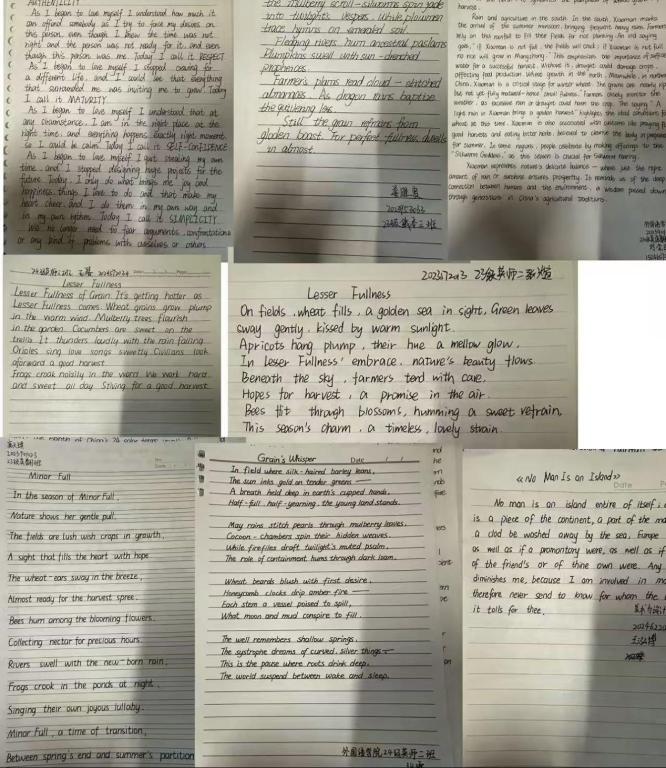 AUTHENTICITY
As I began to love myself I understand how much it
can offend somebody as I try to force my desires on
this person, even though I knew the time was not
right and the person was not ready for it, and even
though this person was me. Today I call it RESPECT
As I began to love myself I stopped craving for
a different life, and I could see that everything
that surrounded me was inviting me to grow. Today
I call it MATURITY.
As I began to love myself I understand that at
any circumstance, I am in the right place at the
right time, and everything happens exactly right moment.
so I could be calm. Today I call it SELF-CONFIDENCE
As I began to love myself I quit stealing my own
time, and I stopped designing huge projects for the
future. Today, I only do what brings me joy and
happiness, things I love to do and that make my
heart cheer, and I do them in my own way and
in my own rhythm. Today I call it SIMPLICITY.
We no longer need to fear arguments, confrontations
or any kind of problems with ourselves or others
the mulberry scroll - silkworms spin jade
into twilight's vespers, while plowmen
trace hymns on emerald soil.
Fledging rivers hum ancestral psalams
Pumpkins swell with sun-drenched
prophecies
Farmers' plams read cloud-stitched
almanacs. As dragon rains baptize
the
Still the grain refrains from
gloden boast. For perfect fullness dwells
in almost.
harvest.
Rain and agriculture in the south. In the south, Xiaoman marks
the arrival of the summer monsoon, bringing frequent heavy rains. Farmers
rely on this rainfall to fill their fields for rice planting. An old saying
goes, "If Xiaoman is not full, the fields will crack; if Xiaoman is not full
no rice will grow in Mangzhong." This expression the importance of
water for a successful harvest. Without it, drought could damage crops,
affecting food production. Wheat growth in the north. Meanwhile, in northern
China, Xiaoman is a critical stage for winter wheat. The grains are nearly ripe
but not yet fully matured - hence "Lesser Fullness". Farmers closely monitor the
weather, as excessive rain or drought could harm the crop. The saying "A
light rain in Xiaoman brings a golden harvest" highlights the ideal conditions for
wheat at this time. Xiaoman is also associated with customs like praying for
good harvests and eating bitter herbs, believed to cleanse the body in preparation
for summer. In some regions, people celebrate by making offerings to the
"Silkworm Goddess", as this season is crucial for silkworm rearing.
Xiaoman represents nature's delicate balance — where just the right
amount of rain or sunshine ensures prosperity. It reminds us of the deep
connection between humans and the environment, a wisdom passed down
through generations in China's agricultural traditions.
Lesser Fullness
Lesser Fullness of Grain. It's getting hotter as
Lesser Fullness comes. Wheat grains grow plump
in the warm wind. Mulberry trees flourish
in the garden. Cucumbers are sweet on the
trellis. It thunders loudly with the rain falling
Orioles sing love songs sweetly. Civilians look
aforward a good harvest
Frogs croak noisily in the We work hard
and sweet all day. Stiving for a good harvest
Lesser Fullness
On fields, wheat fills, a golden sea in sight, Green leaves
sway gently, kissed by warm sunlight.
Apricots hang plump, their hue a mellow glow,
In Lesser Fullness' embrace, nature's beauty flows.
Beneath the sky, farmers tend with care,
Hopes for harvest, a promise in the air.
Bees flit through blossoms, humming a sweet refrain,
This season's charm, a timeless, lovely strain.
Minor Full
In the season of Minor Full,
Nature shows her gentle pull.
The fields are lush with crops in growth,
A sight that fills the heart with hope
The wheat-ears sway in the breeze,
Almost ready for the harvest spree.
Bees hum among the blooming flowers,
Collecting nectar for precious hours.
Rivers swell with the new-born rain,
Frogs crook in the ponds at night,
Singing their own joyous lullaby.
Minor Full, a time of transition,
Between spring's end and summer's partition
Grain's Whisper
Date
In field where silk-haired barley leans,
The sun inks gold on tender greens —
A breath held deep in earth's cupped hands,
Half-full, half-yearning, the young land stands.
May rains stitch pearls through mulberry leaves,
Cocoon-chambers spin their hidden weaves.
While fireflies draft twilight's muted psalm,
The role of containment hums through dark loam.
Wheat beards blush with first desire,
Honeycomb clocks drip amber fire —
Each stem a vessel poised to spill,
What moon and mud conspire to fill.
The well remembers shallow springs.
The systrophe dreams of curved, silver things —
This is the pause where roots drink deep,
The world suspend between wake and sleep.
外国语学院,24级英师二班
《No Man Is an Island》
No man is an island entire of itself;
is a piece of the continent, a part of the
a clod be washed away by the sea, Europe
as well as if a promontory were, as well as if
of the friend's or of thine own were. Any
diminishes me, because I am involved in
therefore never send to know for whom the
it tolls for thee.